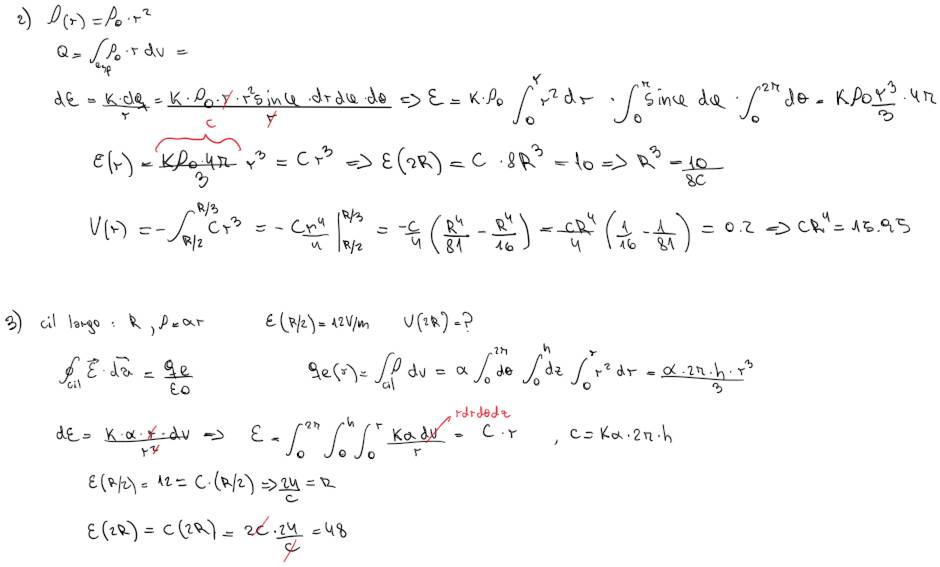 2) ρ(r) = ρ₀ · r²
Q = ∫esf ρ₀ · r dv =
dE = K·dq/r = K·ρ₀·r·r² sinφ · dr dφ · dθ / r => E = K·ρ₀ ∫₀^r r² dr · ∫₀^π sinφ dφ · ∫₀^2π dθ = Kρ₀ r³/3 · 4π
C
E(r) = Kρ₀·4π/3 r³ = Cr³ => E(2R) = C · 8R³ = 10 => R³ = 10/8C
V(r) = -∫_{R/2}^{R/3} Cr³ = -Cr⁴/4 |_{R/2}^{R/3} = -C/4 (R⁴/81 - R⁴/16) = CR⁴/4 (1/16 - 1/81) = 0.2 => CR⁴ = 15.95
3) cil largo : R, ρ = αr E(R/2) = 12V/m V(2R) = ?
∮cil E⃗ · da⃗ = qe/ε0 qe(r) = ∫cil ρ dv = α ∫₀^2π dθ ∫₀^h dz ∫₀^r r² dr = α·2π·h·r³/3
rdrdθdz
dE = K·α·r·dv / r² => E = ∫₀^2π ∫₀^h ∫₀^r Kα dv / r = C · r , C = Kα·2π·h
E(R/2) = 12 = C·(R/2) => 24/C = R
E(2R) = C(2R) = 2C · 24/C = 48